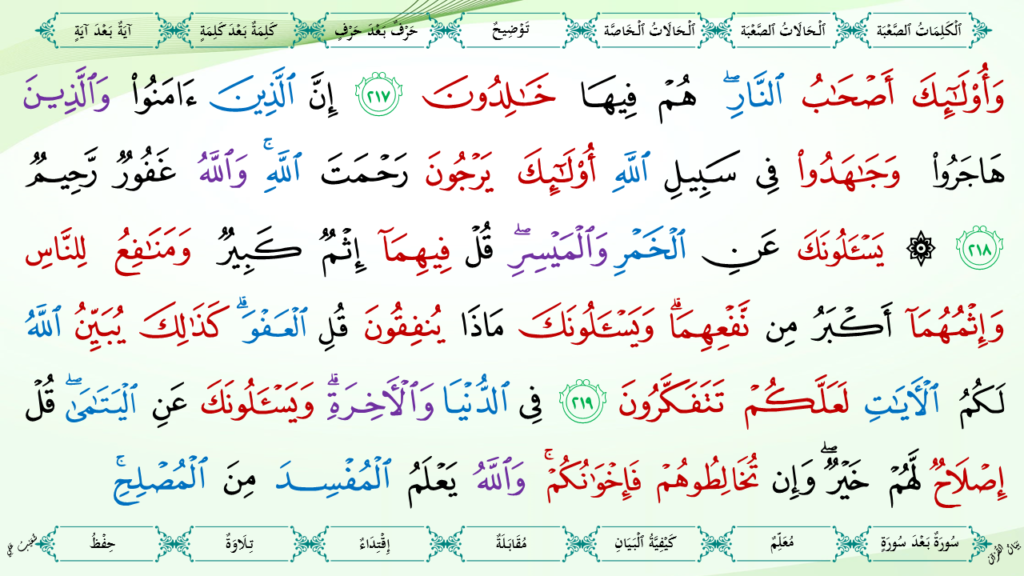 اَلْكَلِمَاتُ الصَّعْبَة اَلْحَالَاتُ الصَّعْبَة اَلْحَالَاتُ الْخَاصَّة تَوْضِيحٌ حَرْفٌ بَعْدَ حَرْفٍ كَلِمَةٌ بَعْدَ كَلِمَةٍ آيَةٌ بَعْدَ آيَةٍ
وَأُوْلَـٰٓئِكَ أَصْحَـٰبُ ٱلنَّارِۖ هُمْ فِيهَا خَـٰلِدُونَ ٢١٧ إِنَّ ٱلَّذِينَ ءَامَنُواْ وَٱلَّذِينَ
هَاجَرُواْ وَجَـٰهَدُواْ فِى سَبِيلِ ٱللَّهِ أُوْلَـٰٓئِكَ يَرْجُونَ رَحْمَتَ ٱللَّهِۚ وَٱللَّهُ غَفُورٌ رَّحِيمٌ
٢١٨ ۞ يَسْـَٔلُونَكَ عَنِ ٱلْخَمْرِ وَٱلْمَيْسِرِۖ قُلْ فِيهِمَآ إِثْمٌ كَبِيرٌ وَمَنَـٰفِعُ لِلنَّاسِ
وَإِثْمُهُمَآ أَكْبَرُ مِن نَّفْعِهِمَاۗ وَيَسْـَٔلُونَكَ مَاذَا يُنفِقُونَ قُلِ ٱلْعَفْوَۗ كَذَٰلِكَ يُبَيِّنُ ٱللَّهُ
لَكُمُ ٱلْأَيَـٰتِ لَعَلَّكُمْ تَتَفَكَّرُونَ ٢١٩ فِى ٱلدُّنْيَا وَٱلْأَخِرَةِۗ وَيَسْـَٔلُونَكَ عَنِ ٱلْيَتَـٰمَىٰۖ قُلْ
إِصْلَاحٌ لَّهُمْ خَيْرٌۖ وَإِن تُخَالِطُوهُمْ فَإِخْوَٰنُكُمْۚ وَٱللَّهُ يَعْلَمُ ٱلْمُفْسِدَ مِنَ ٱلْمُصْلِحِۚ
سُورَةٌ بَعْدَ سُورَةٍ مُعَلِّمٌ كَيْفِيَّةُ الْبَيَانِ مُقَابَلَةٌ إِقْتِدَاءٌ تِلَاوَةٌ حِفْظٌ